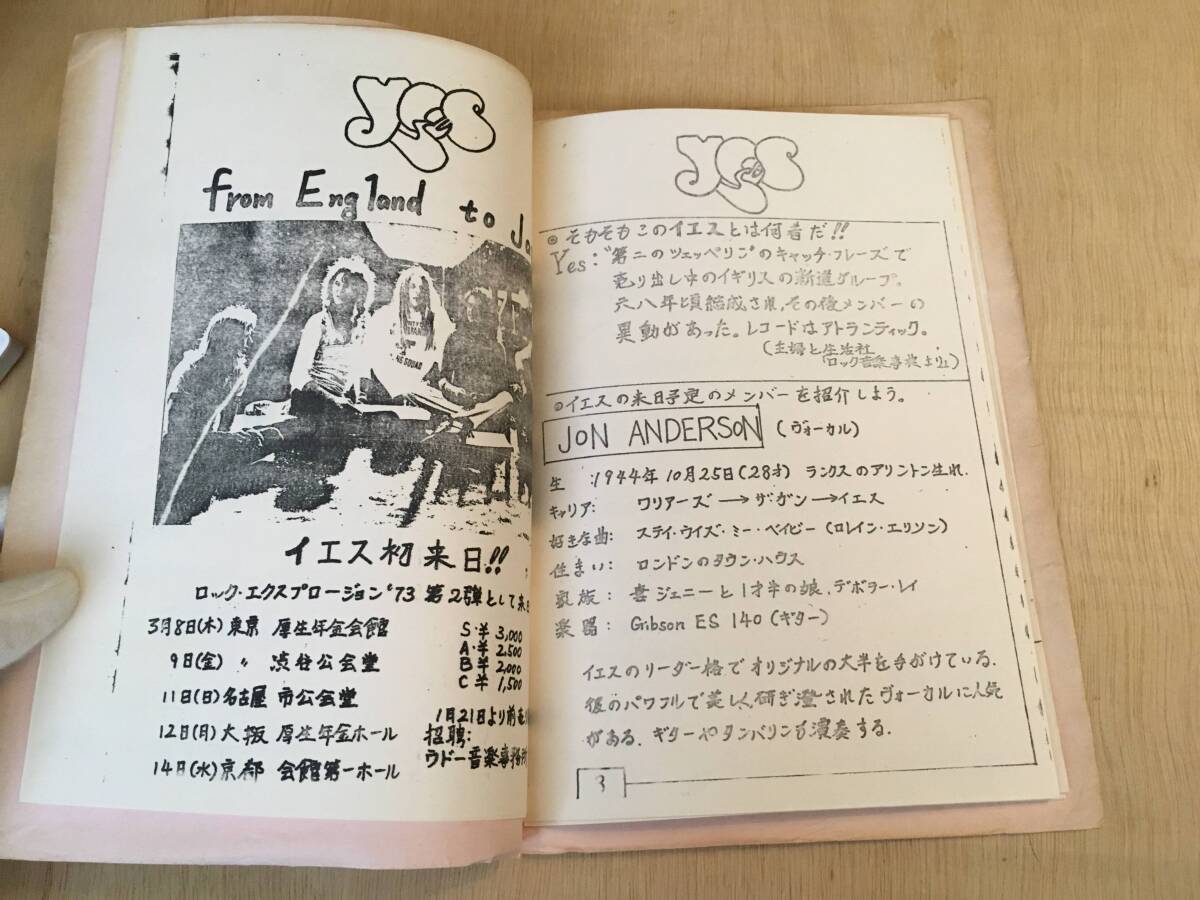 yes
from England to Ja
イエス初来日!!
ロック・エクスプロージョン'73 第2弾として来日
3月8日(木)東京 厚生年金会館
9日(金) 〃 渋谷公会堂
11日(日)名古屋 市公会堂
12日(月)大阪 厚生年金ホール
14日(水)京都 会館第一ホール
S・¥3,000
A・¥2,500
B¥2,000
C¥1,500
1月21日より前売
招聘:
ウドー音楽事務所
yes
◎そもそもこのイエスとは何者だ!!
Yes:"第二のツェッペリン"のキャッチ・フレーズで
売り出し中のイギリスの新進グループ。
六八年頃結成され、その後メンバーの
異動があった。レコードはアトランティック。
(主婦と生活社
「ロック音楽事典より」)
◎イエスの来日予定のメンバーを紹介しよう。
JON ANDERSON (ヴォーカル)
生 :1944年10月25日(28才) ランクスのアリントン生れ.
キャリア: ワリアーズ→ザ・ガン→イエス
好きな曲: ステイ・ウイズ・ミー・ベイビー(ロレイン・エリソン)
住まい: ロンドンのタウン・ハウス
家族: 妻ジェニーと1才半の娘、デボラー・レイ
楽器: Gibson ES 140(ギター)
イエスのリーダー格でオリジナルの大半を手がけている.
彼のパワフルで美しく研ぎ澄されたヴォーカルに人気
がある. ギターやタンバリンも演奏する.
3